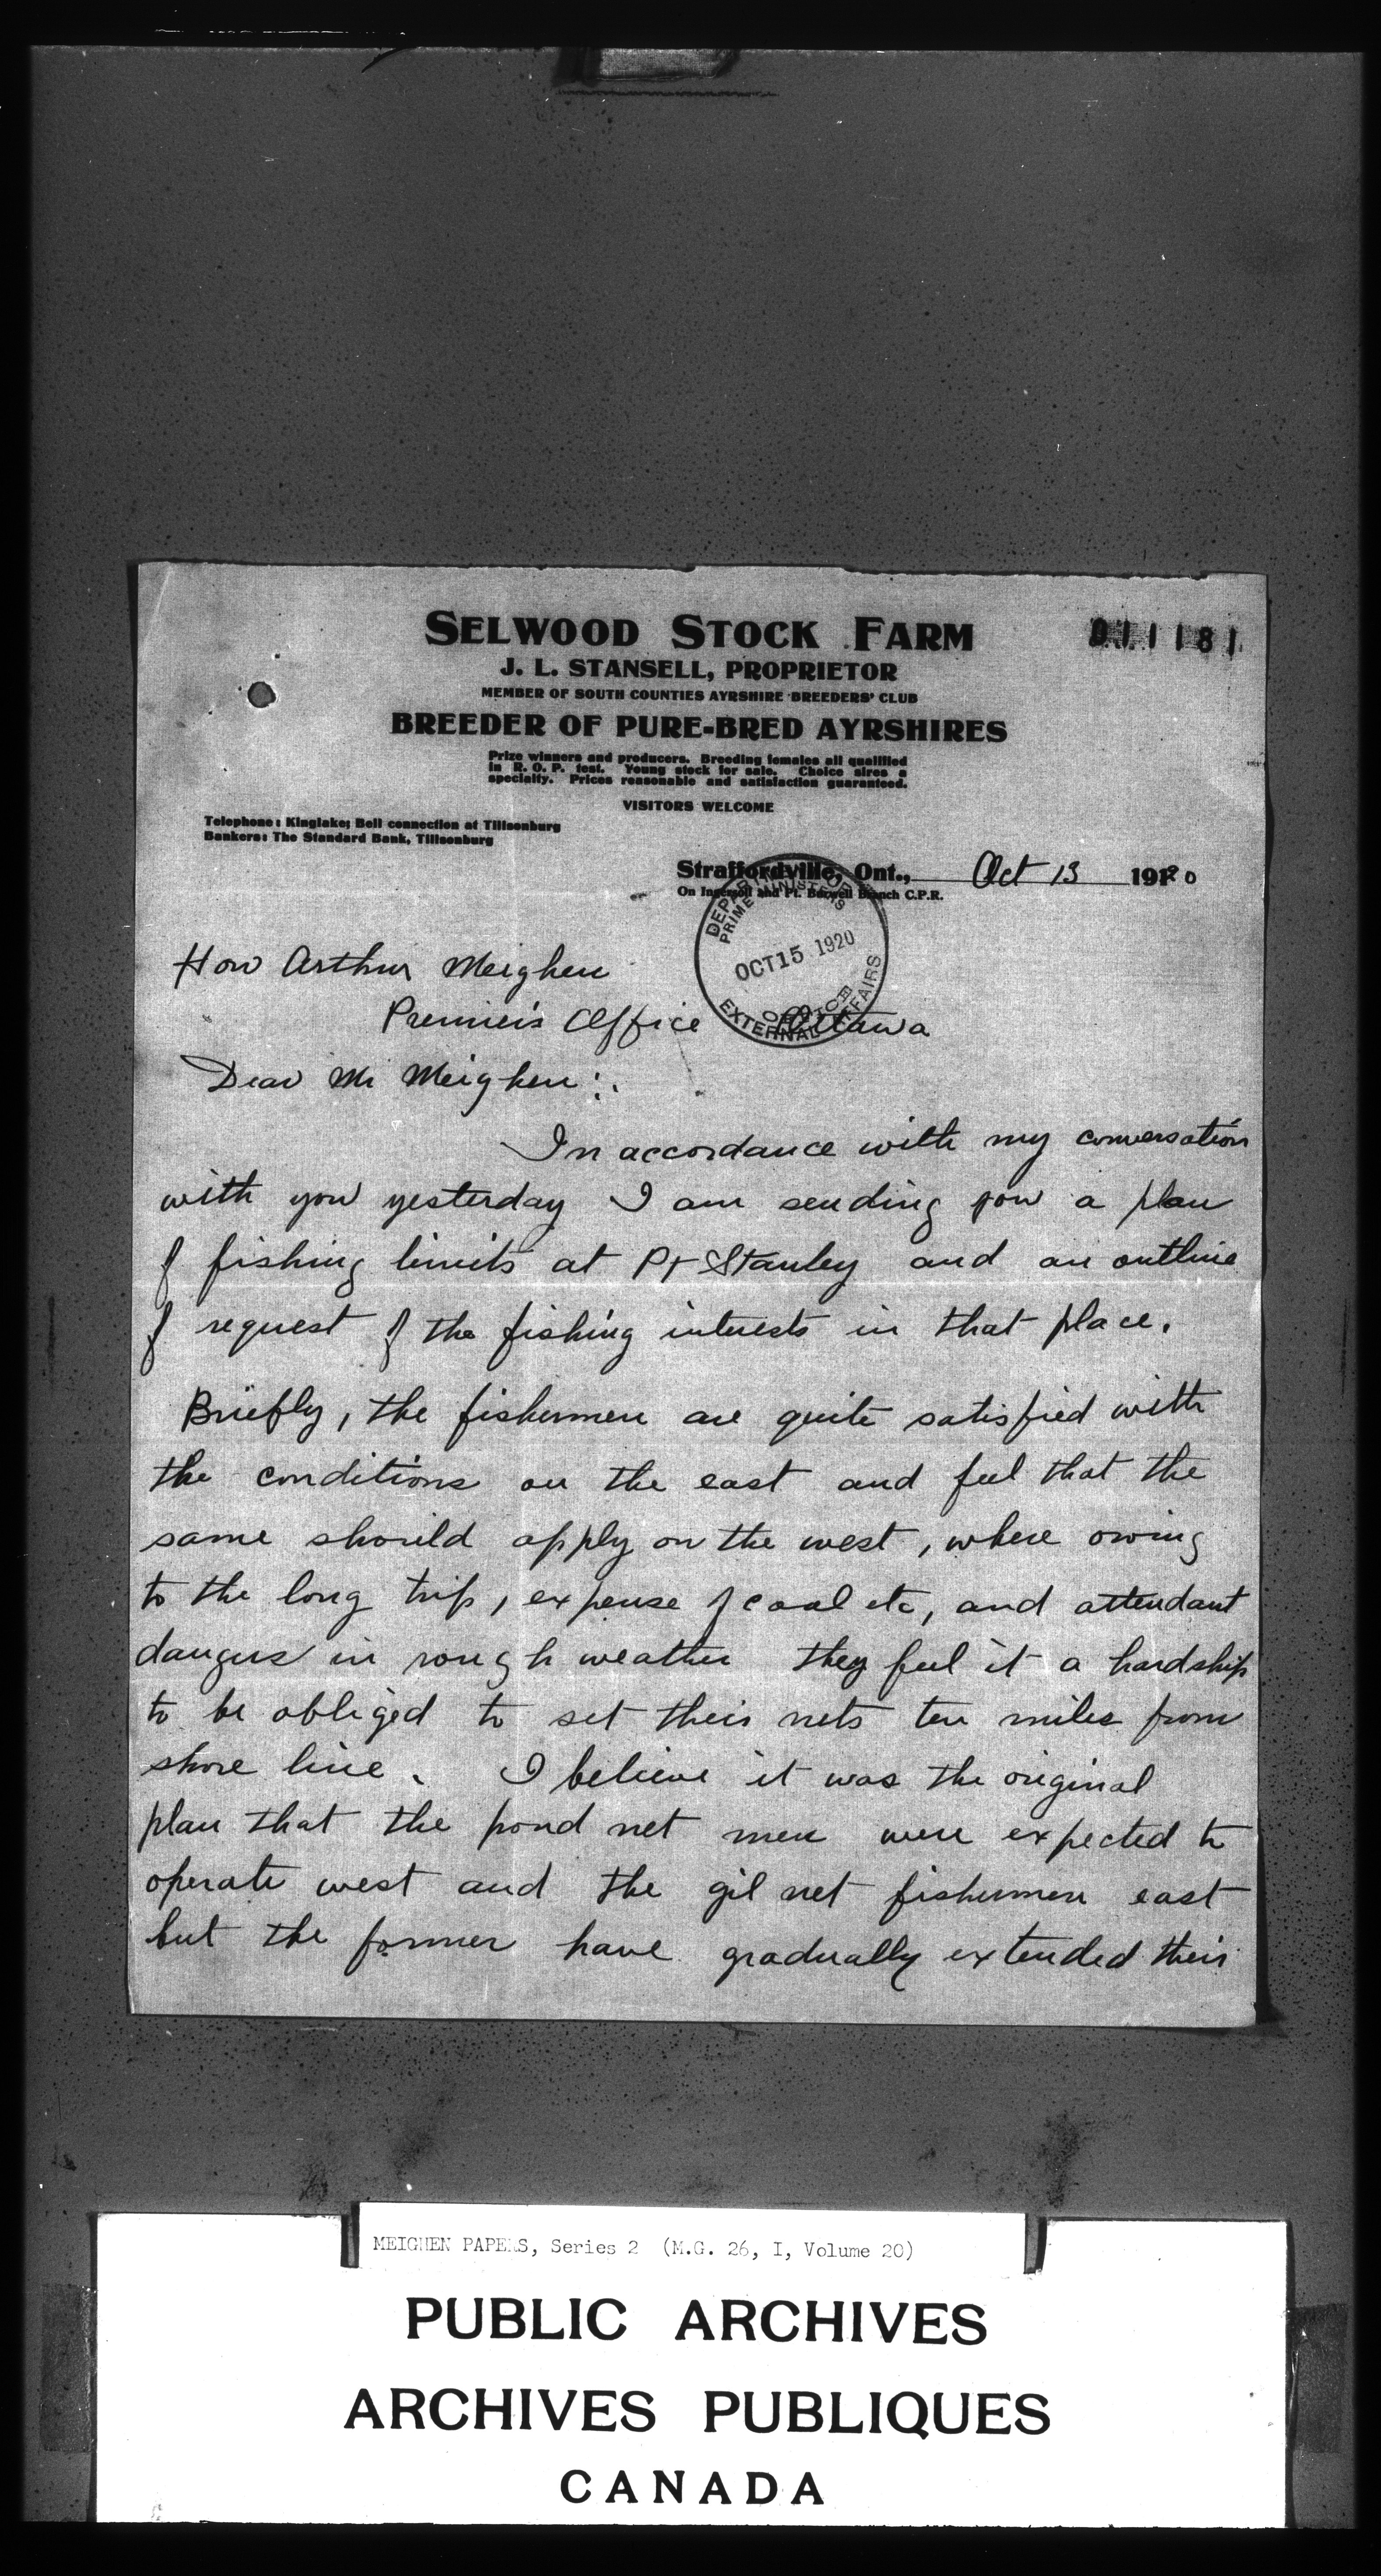 SELWOOD STOCK FARM
011181
J. L. STANSELL, PROPRIETOR
MEMBER OF SOUTH COUNTIES AYRSHIRE BREEDERS' CLUB
BREEDER OF PURE-BRED AYRSHIRES
Prize winners and producers. Breeding females all qualified
in R. O. P. test. Young stock for sale. Choice sires a
specialty. Prices reasonable and satisfaction guaranteed.
VISITORS WELCOME
Telephone: Kinglake; Bell connection at Tillsonburg
Bankers: The Standard Bank, Tillsonburg
Straffordville, Ont., Oct 13 1920
On Ingersoll and Pt. Burwell Branch C.P.R.
PRIME MINISTER'S OFFICE
OCT 15 1920
EXTERNAL AFFAIRS
Hon Arthur Meighen
Premier's Office Ottawa
Dear Mr Meighen:.
In accordance with my conversation
with you yesterday I am sending you a plan
of fishing limits at Pt Stanley and an outline
of request of the fishing interests in that place.
Briefly, the fishermen are quite satisfied with
the conditions on the east and feel that the
same should apply on the west, where owing
to the long trip, expense of coal etc, and attendant
dangers in rough weather they feel it a hardship
to be obliged to set their nets ten miles from
shore line. I believe it was the original
plan that the pond net men were expected to
operate west and the gil net fishermen east
but the former have gradually extended their
MEIGHEN PAPERS, Series 2 (M.G. 26, I, Volume 20)
PUBLIC ARCHIVES
ARCHIVES PUBLIQUES
CANADA